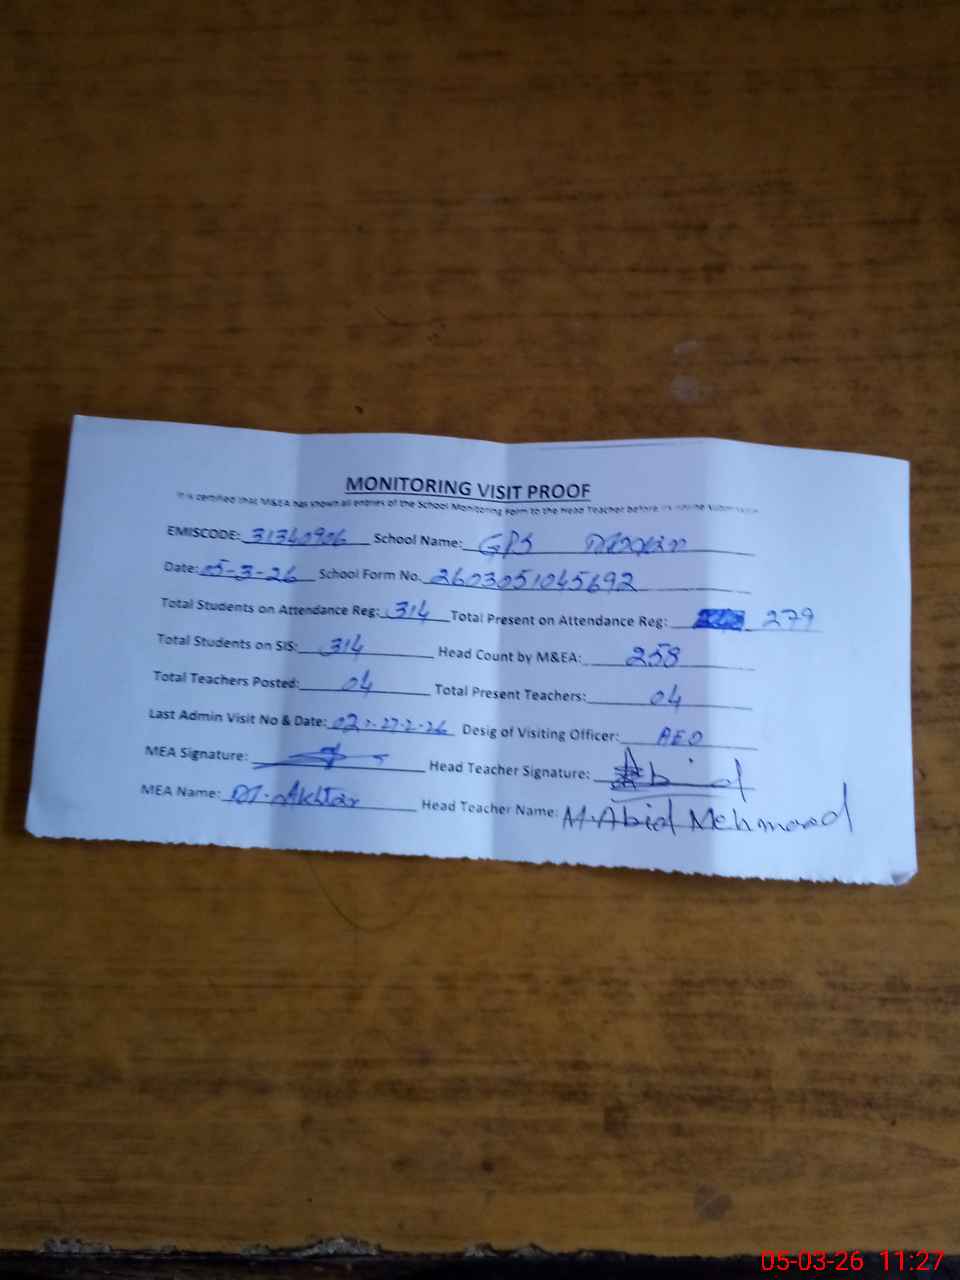 MONITORING VISIT PROOF
It is certified that M&EA has shown all entries of the School Monitoring Form to the Head Teacher before its online submission
EMISCODE: 31340906 School Name: GPS
Date: 05-3-26 School Form No. 2603051045692
Total Students on Attendance Reg: 314 Total Present on Attendance Reg: 279
Total Students on SIS: 314 Head Count by M&EA: 258
Total Teachers Posted: 04 Total Present Teachers: 04
Last Admin Visit No & Date: 02, 27-2-26 Desig of Visiting Officer: AEO
MEA Signature: Head Teacher Signature: Abid
MEA Name: Akhtar Head Teacher Name: M.Abid Mehmood
05-03-26 11:27